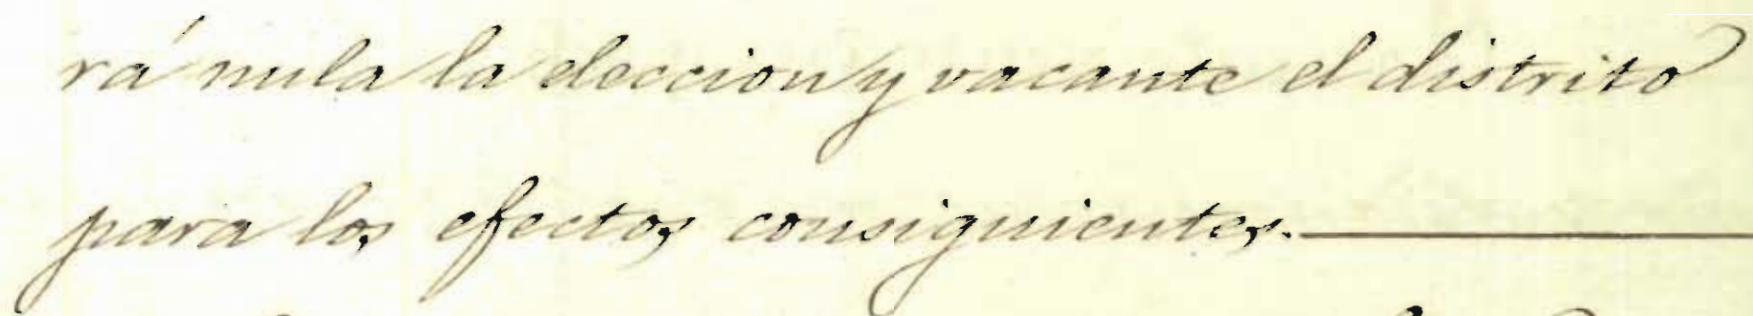 rá nula la eleccion y vacante el distrito
para los efectos consiguientes.